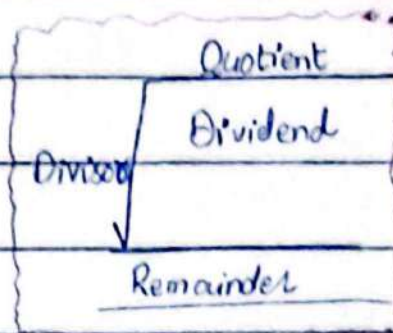 Quotient
Dividend
Divisor
Remainder